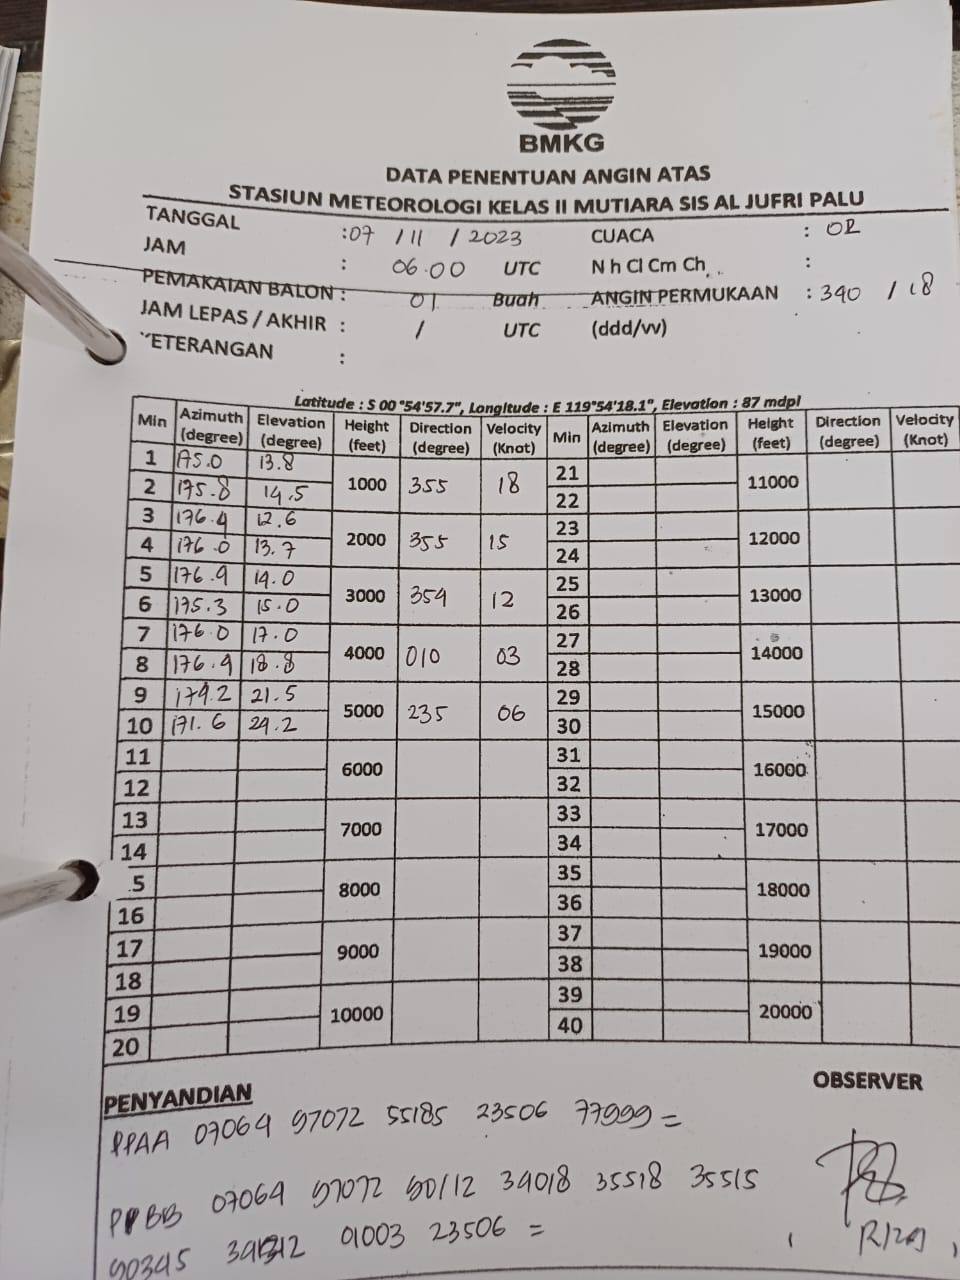 BMKG
DATA PENENTUAN ANGIN ATAS
STASIUN METEOROLOGI KELAS II MUTIARA SIS AL JUFRI PALU
TANGGAL :07 / 11 / 2023 CUACA : OR
JAM : 06.00 UTC N h Cl Cm Ch :
PEMAKAIAN BALON : 01 Buah ANGIN PERMUKAAN : 340 / 18
JAM LEPAS / AKHIR : / UTC (ddd/vv)
KETERANGAN :
Latitude : S 00°54'57.7", Longitude : E 119°54'18.1", Elevation : 87 mdpl
Min Azimuth (degree) Elevation (degree) Height (feet) Direction (degree) Velocity (Knot) Min Azimuth (degree) Elevation (degree) Height (feet) Direction (degree) Velocity (Knot)
1 175.0 13.8 1000 355 18 21 11000
2 175.8 14.5 22
3 176.4 12.6 2000 355 15 23 12000
4 176.0 13.7 24
5 176.9 14.0 3000 354 12 25 13000
6 175.3 15.0 26
7 176.0 17.0 4000 010 03 27 14000
8 176.4 18.8 28
9 174.2 21.5 5000 235 06 29 15000
10 171.6 24.2 30
11 6000 31 16000
12 32
13 7000 33 17000
14 34
5 8000 35 18000
16 36
17 9000 37 19000
18 38
19 10000 39 20000
20 40
PENYANDIAN OBSERVER
PPAA 07064 97072 55185 23506 77999 =
PPBB 07064 97072 90/12 34018 35518 35515
90345 01003 23506 =